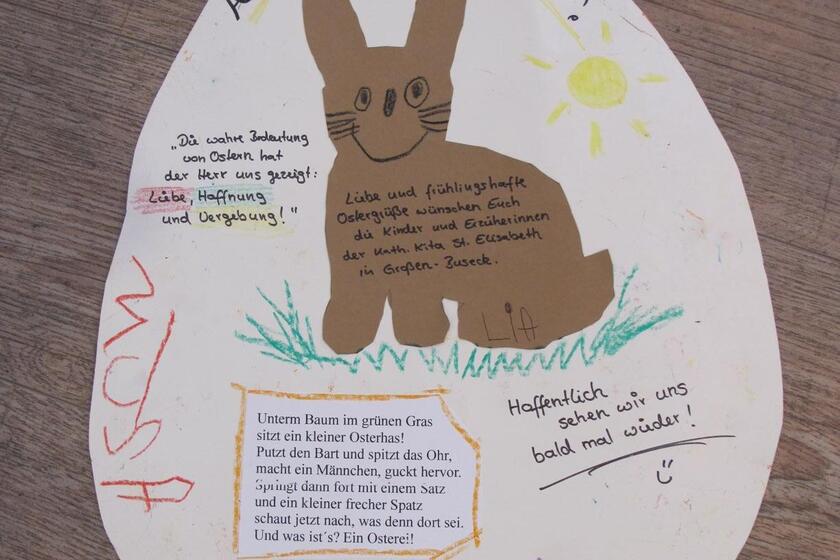 „Die wahre Bedeutung
von Ostern hat
der Herr uns gezeigt:
Liebe, Hoffnung
und Vergebung!"
Liebe und frühlingshafte
Ostergrüße wünschen Euch
die Kinder und Erzieherinnen
der Kath. Kita St. Elisabeth
in Großen-Buseck.
LiA
Unterm Baum im grünen Gras
sitzt ein kleiner Osterhas!
Putzt den Bart und spitzt das Ohr,
macht ein Männchen, guckt hervor.
Springt dann fort mit einem Satz
und ein kleiner frecher Spatz
schaut jetzt nach, was denn dort sei.
Und was ist´s? Ein Osterei!
Hoffentlich
sehen wir uns
bald mal wieder!